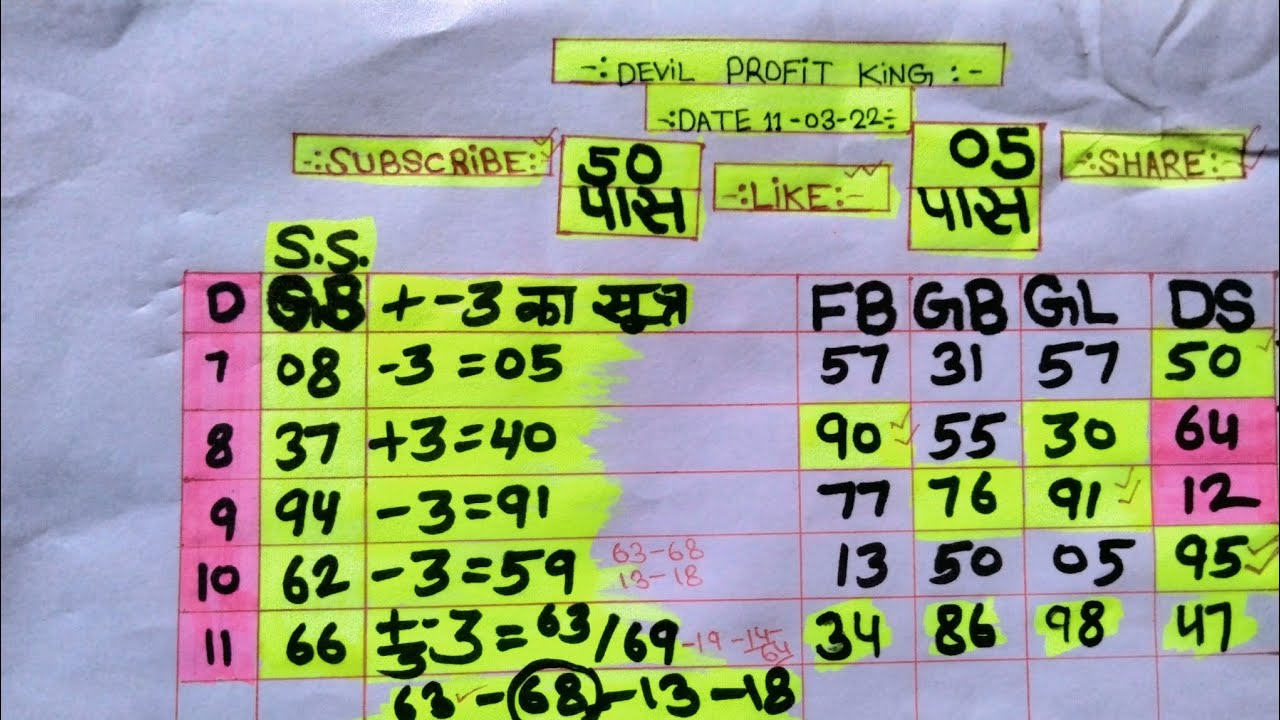 -:DEViL PROFiT KiNG:-
-:DATE 11-03-22:-
-:SUBSCRiBE:- 50 पास -:LiKE:- 05 पास -:SHARE:-
S.S.
D GB +-3 का सूत्र FB GB GL DS
7 08 -3=05 57 31 57 50
8 37 +3=40 90 55 30 64
9 94 -3=91 77 76 91 12
10 62 -3=59 63-68 13 50 05 95
13-18
11 66 +-3=63/69-19-14- 34 86 98 47
64
63-68-13-18